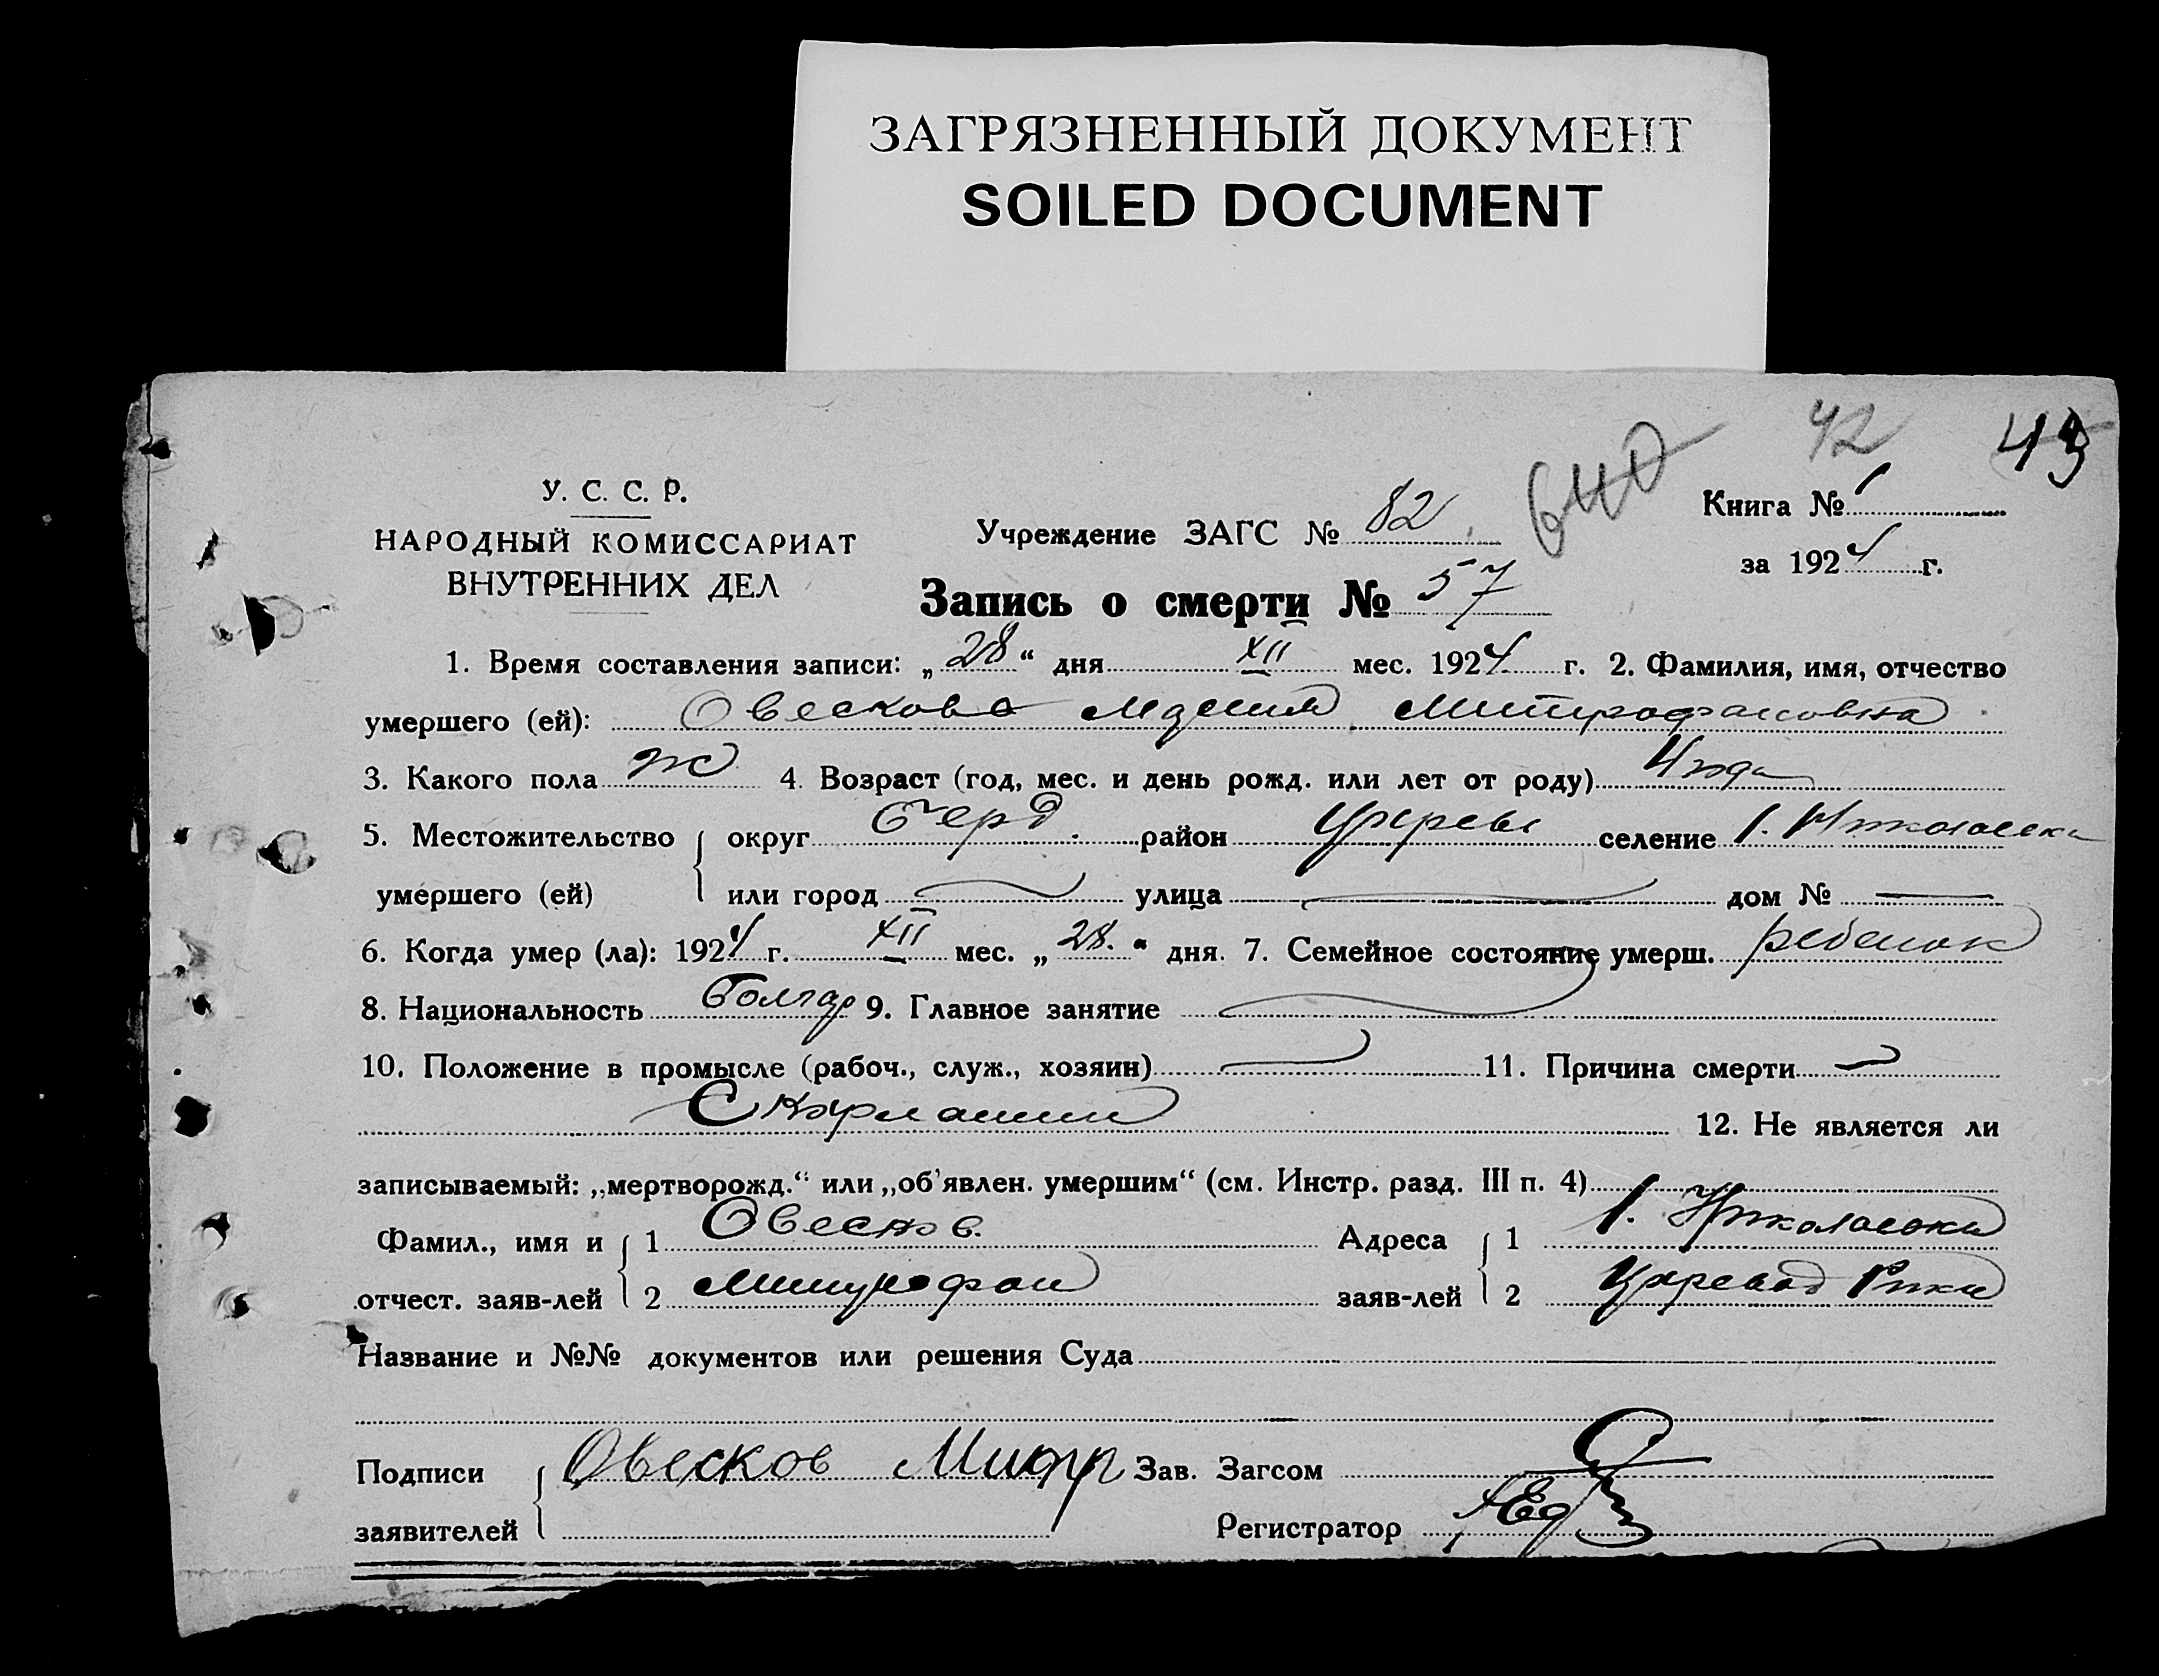 ЗАГРЯЗНЕННЫЙ ДОКУМЕНТ
SOILED DOCUMENT
42 43
640
У. С. С. Р.
НАРОДНЫЙ КОМИССАРИАТ
ВНУТРЕННИХ ДЕЛ
Учреждение ЗАГС № 82
Книга № 1
за 1924 г.
Запись о смерти № 57
1. Время составления записи: „28“ дня XII мес. 1924 г. 2. Фамилия, имя, отчество
умершего (ей): Овескова Митрофановна
3. Какого пола ж 4. Возраст (год, мес. и день рожд. или лет от роду) 4 года
5. Местожительство округ район селение Николаевка
умершего (ей) или город улица дом №
6. Когда умер (ла): 1924 г. XII мес. „28.“ дня. 7. Семейное состояние умерш. ребенок
8. Национальность Болгар 9. Главное занятие
10. Положение в промысле (рабоч., служ., хозяин) 11. Причина смерти
12. Не является ли
записываемый: „мертворожд.“ или „об'явлен. умершим“ (см. Инстр. разд. III п. 4)
Фамил., имя и 1 Овесков. Адреса 1 Николаевка
отчест. заяв-лей 2 Митрофан заяв-лей 2
Название и №№ документов или решения Суда
Подписи Овесков Митр Зав. Загсом
заявителей Регистратор